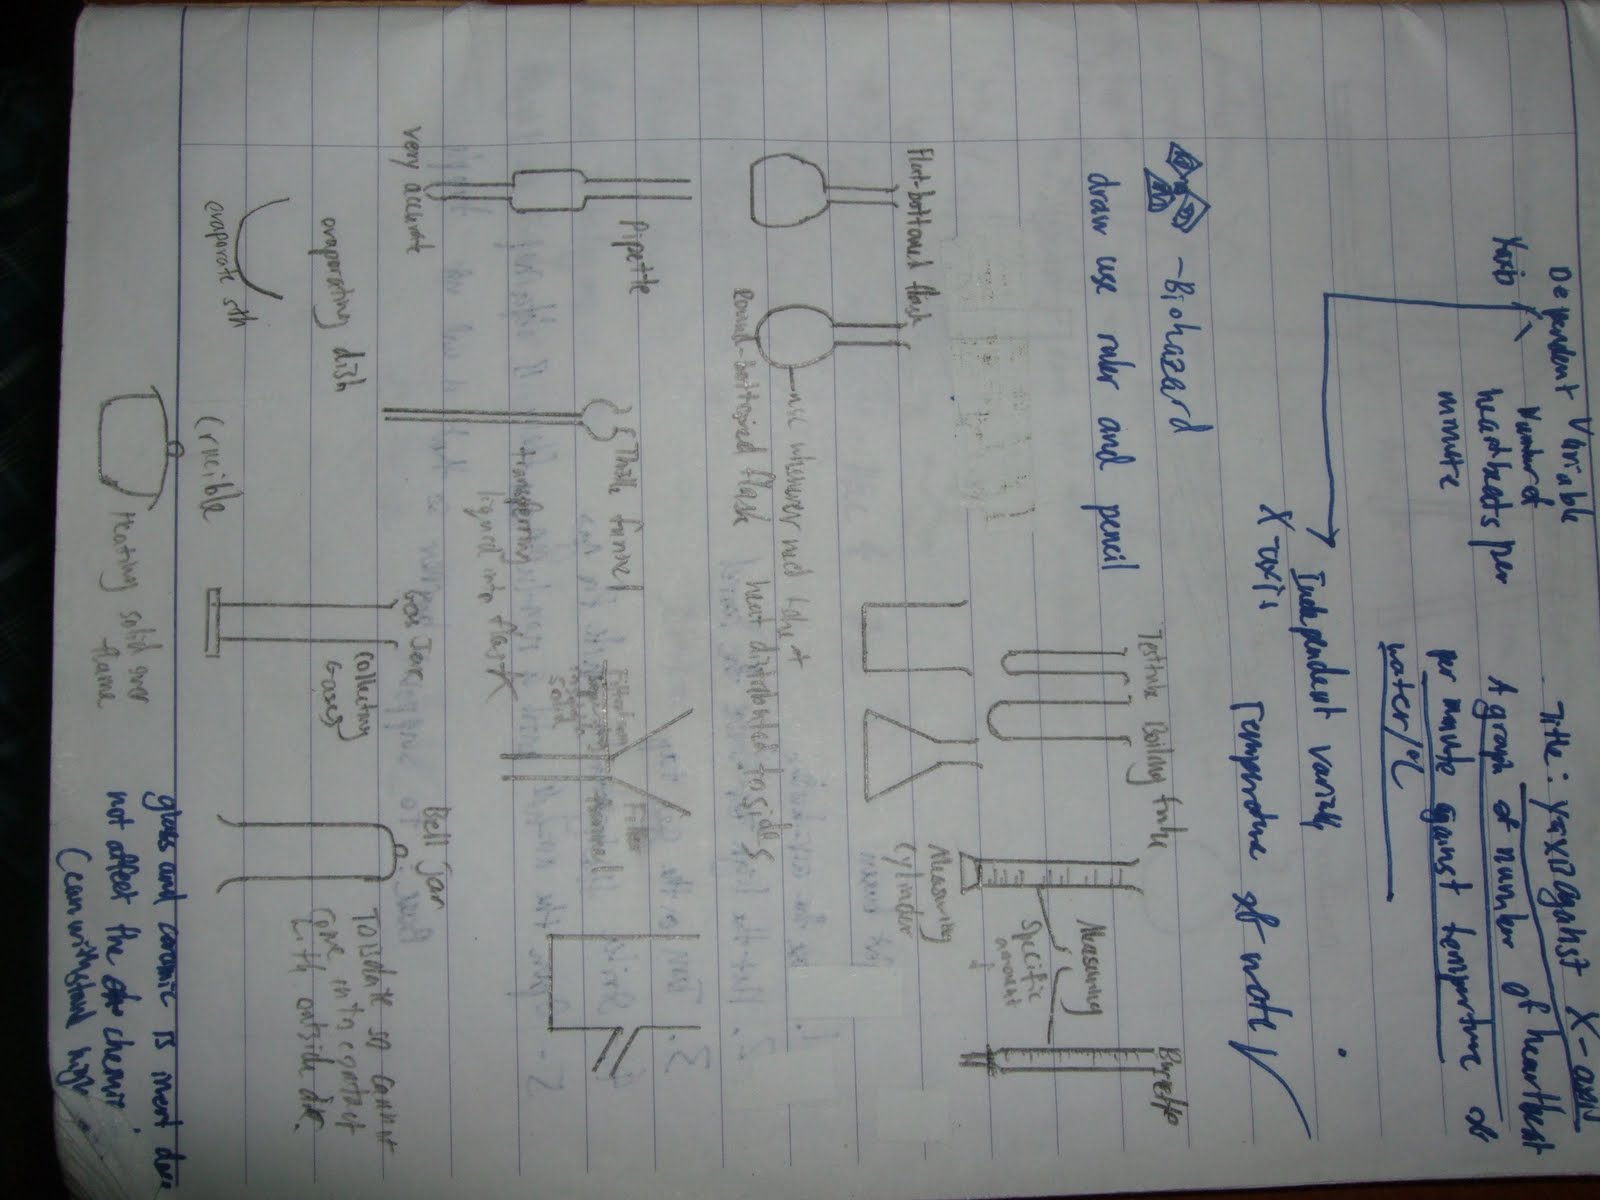 Dependent Variable
Title: y-axis against X-axis
Yaxis
Number of
heartbeats per
minute
A graph of number of heartbeat
per minute against temperature of
water/°C
Independent variable
X-axis
Temperature of water
- Biohazard
draw use ruler and pencil
Testtube
Boiling tube
Burette
Measuring
Specific
amount
Measuring
cylinder
Flat-bottomed flask
use whenever not
heat distributed to sides
Round-bottomed flask
Pipette
very accurate
Thistle funnel
transferring
liquid into flask
Filter
funnel
Filtration
solid
evaporating dish
evaporate sth
Gas Jar
collecting
Gases
Bell jar
To isolate so cannot
come into contact
with outside air.
Crucible
Heating solid over
flame
glass and ceramic is inert does
not affect the chemic
(can withstand high